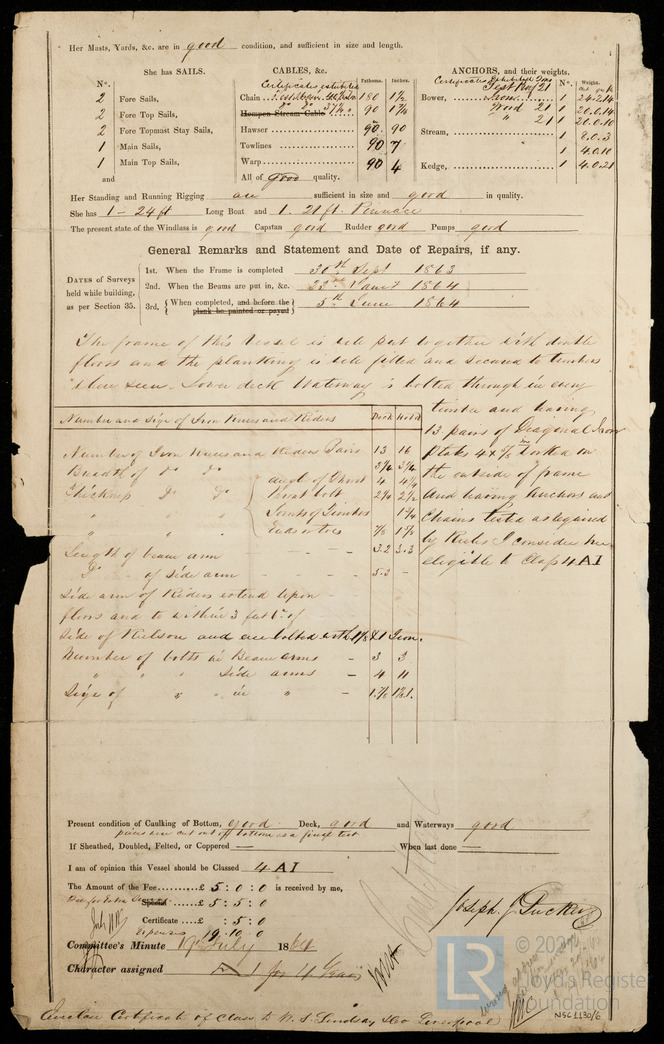 Her Masts, Yards, &c. are in good condition, and sufficient in size and length.
She has SAILS.
N°.
2 Fore Sails,
2 Fore Top Sails,
2 Fore Topmast Stay Sails,
1 Main Sails,
1 Main Top Sails,
and
CABLES, &c. Fathoms. Inches.
Certificates exhibited
Chain 180 1½
Hempen Stream Cable 90
Hawser 90. 90
Towlines 90 7
Warp 90 4
All of good quality.
ANCHORS, and their weights.
N°. Weight.
Certificates Exhibited
Bower, 1 24.2.14
1 20.0.14
1 20.0.10
Stream, 1 8.0.3
1 4.0.10
Kedge, 1 4.0.21
Her Standing and Running Rigging are sufficient in size and good in quality.
She has 1 - 24 ft Long Boat and 1. 21 ft. Pinnace
The present state of the Windlass is good Capstan good Rudder good Pumps good
General Remarks and Statement and Date of Repairs, if any.
DATES of Surveys held while building, as per Section 35.
1st. When the Frame is completed 30th Sept 1863
2nd. When the Beams are put in, &c. 1864
3rd. { When completed, and before the plank be painted or payed } 5th June 1864
The frame of this Vessel is well put together with double
floors and the planking is well fitted and secured to timbers
where seen. Lower deck Waterway is bolted through in every
timber and having
13 pairs of Diagonal Iron
plates 4 x ⅝ In bolted on
the outside of frame
and having Anchors and
Chains tested as required
by Rules I consider her
eligible to Class 4 A I
Number and Size of Iron Knees and Riders Deck Hold
Number of Iron Knees and Riders Pairs 13 16
Breadth of Do Do 3½ 3½
Thickness Do Do { angle of Throat 4 4¼
Throat bolt 2¼ 2½
" " " Joints of Timbers 1¼
Ends or toes ⅞
Length of beam arm 3.2 3.3
Do of side arm 5.3 -
Side arm of Riders extend upon
floors and to within 3 feet of
side of Kielson and are bolted with 1⅛ & 1 Iron.
Number of bolts in Beam arms - 3 3
" " " Side arms - 4 11
Size of " in " - 1.⅞ 1⅛ 1.
Present condition of Caulking of Bottom, good Deck, good and Waterways good
pieces were cut out off bottom as a final test
If Sheathed, Doubled, Felted, or Coppered — When last done —
I am of opinion this Vessel should be Classed 4 A I
The Amount of the Fee.........£ 5 : 0 : 0 is received by me,
Special ....£ 5 : 5 : 0
Certificate ....£ : 5 : 0
Expenses 19 . 10 . 0
Joseph J Tucker
Committee's Minute 19th July 1864
Character assigned A 1 for 4 Years
Lloyd's Register
Foundation
LR
NSC1130/6
Certificate of Class to W. S. Lindsay & Co Liverpool